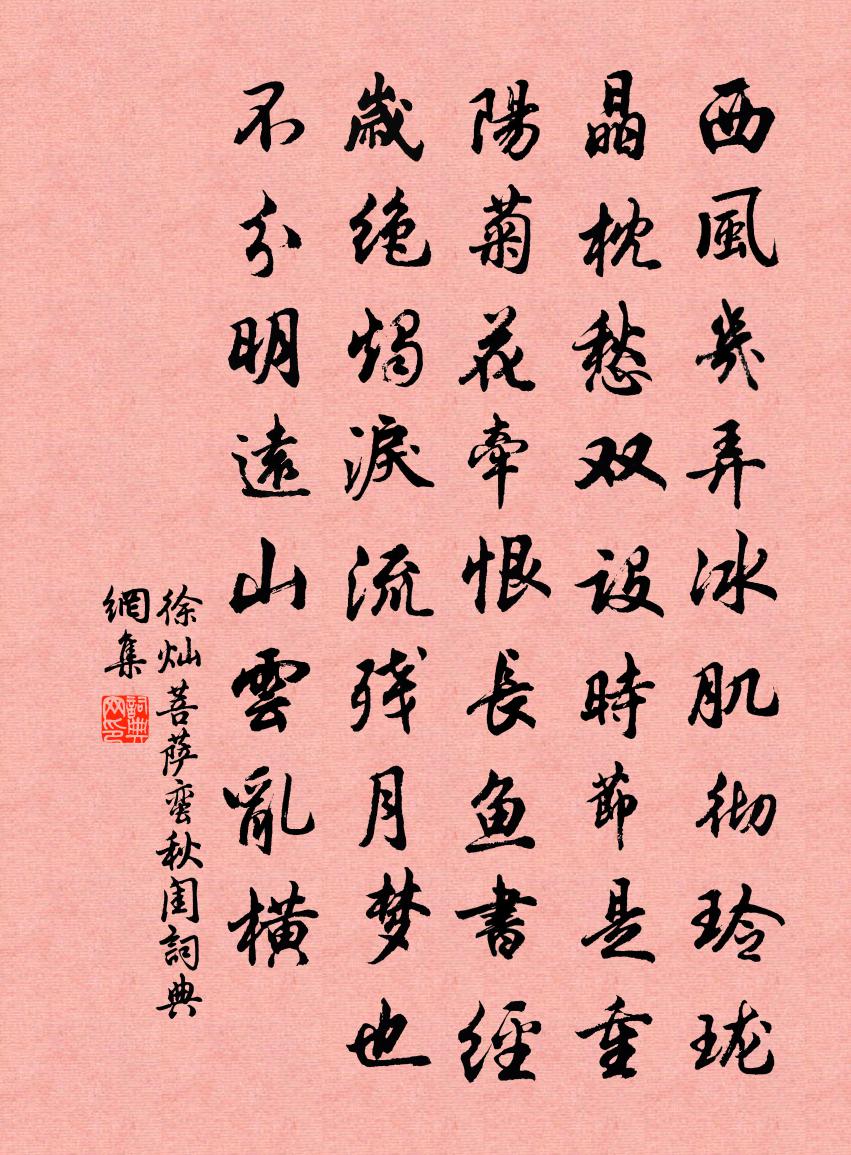 西風幾弄冰肌彻玲珑
晶枕愁双設時節是重
陽菊花牽恨長魚書經
歲绝燭淚流残月梦也
不分明遠山雲亂橫
徐灿菩萨蛮秋闺詞典
網集
詞典网印